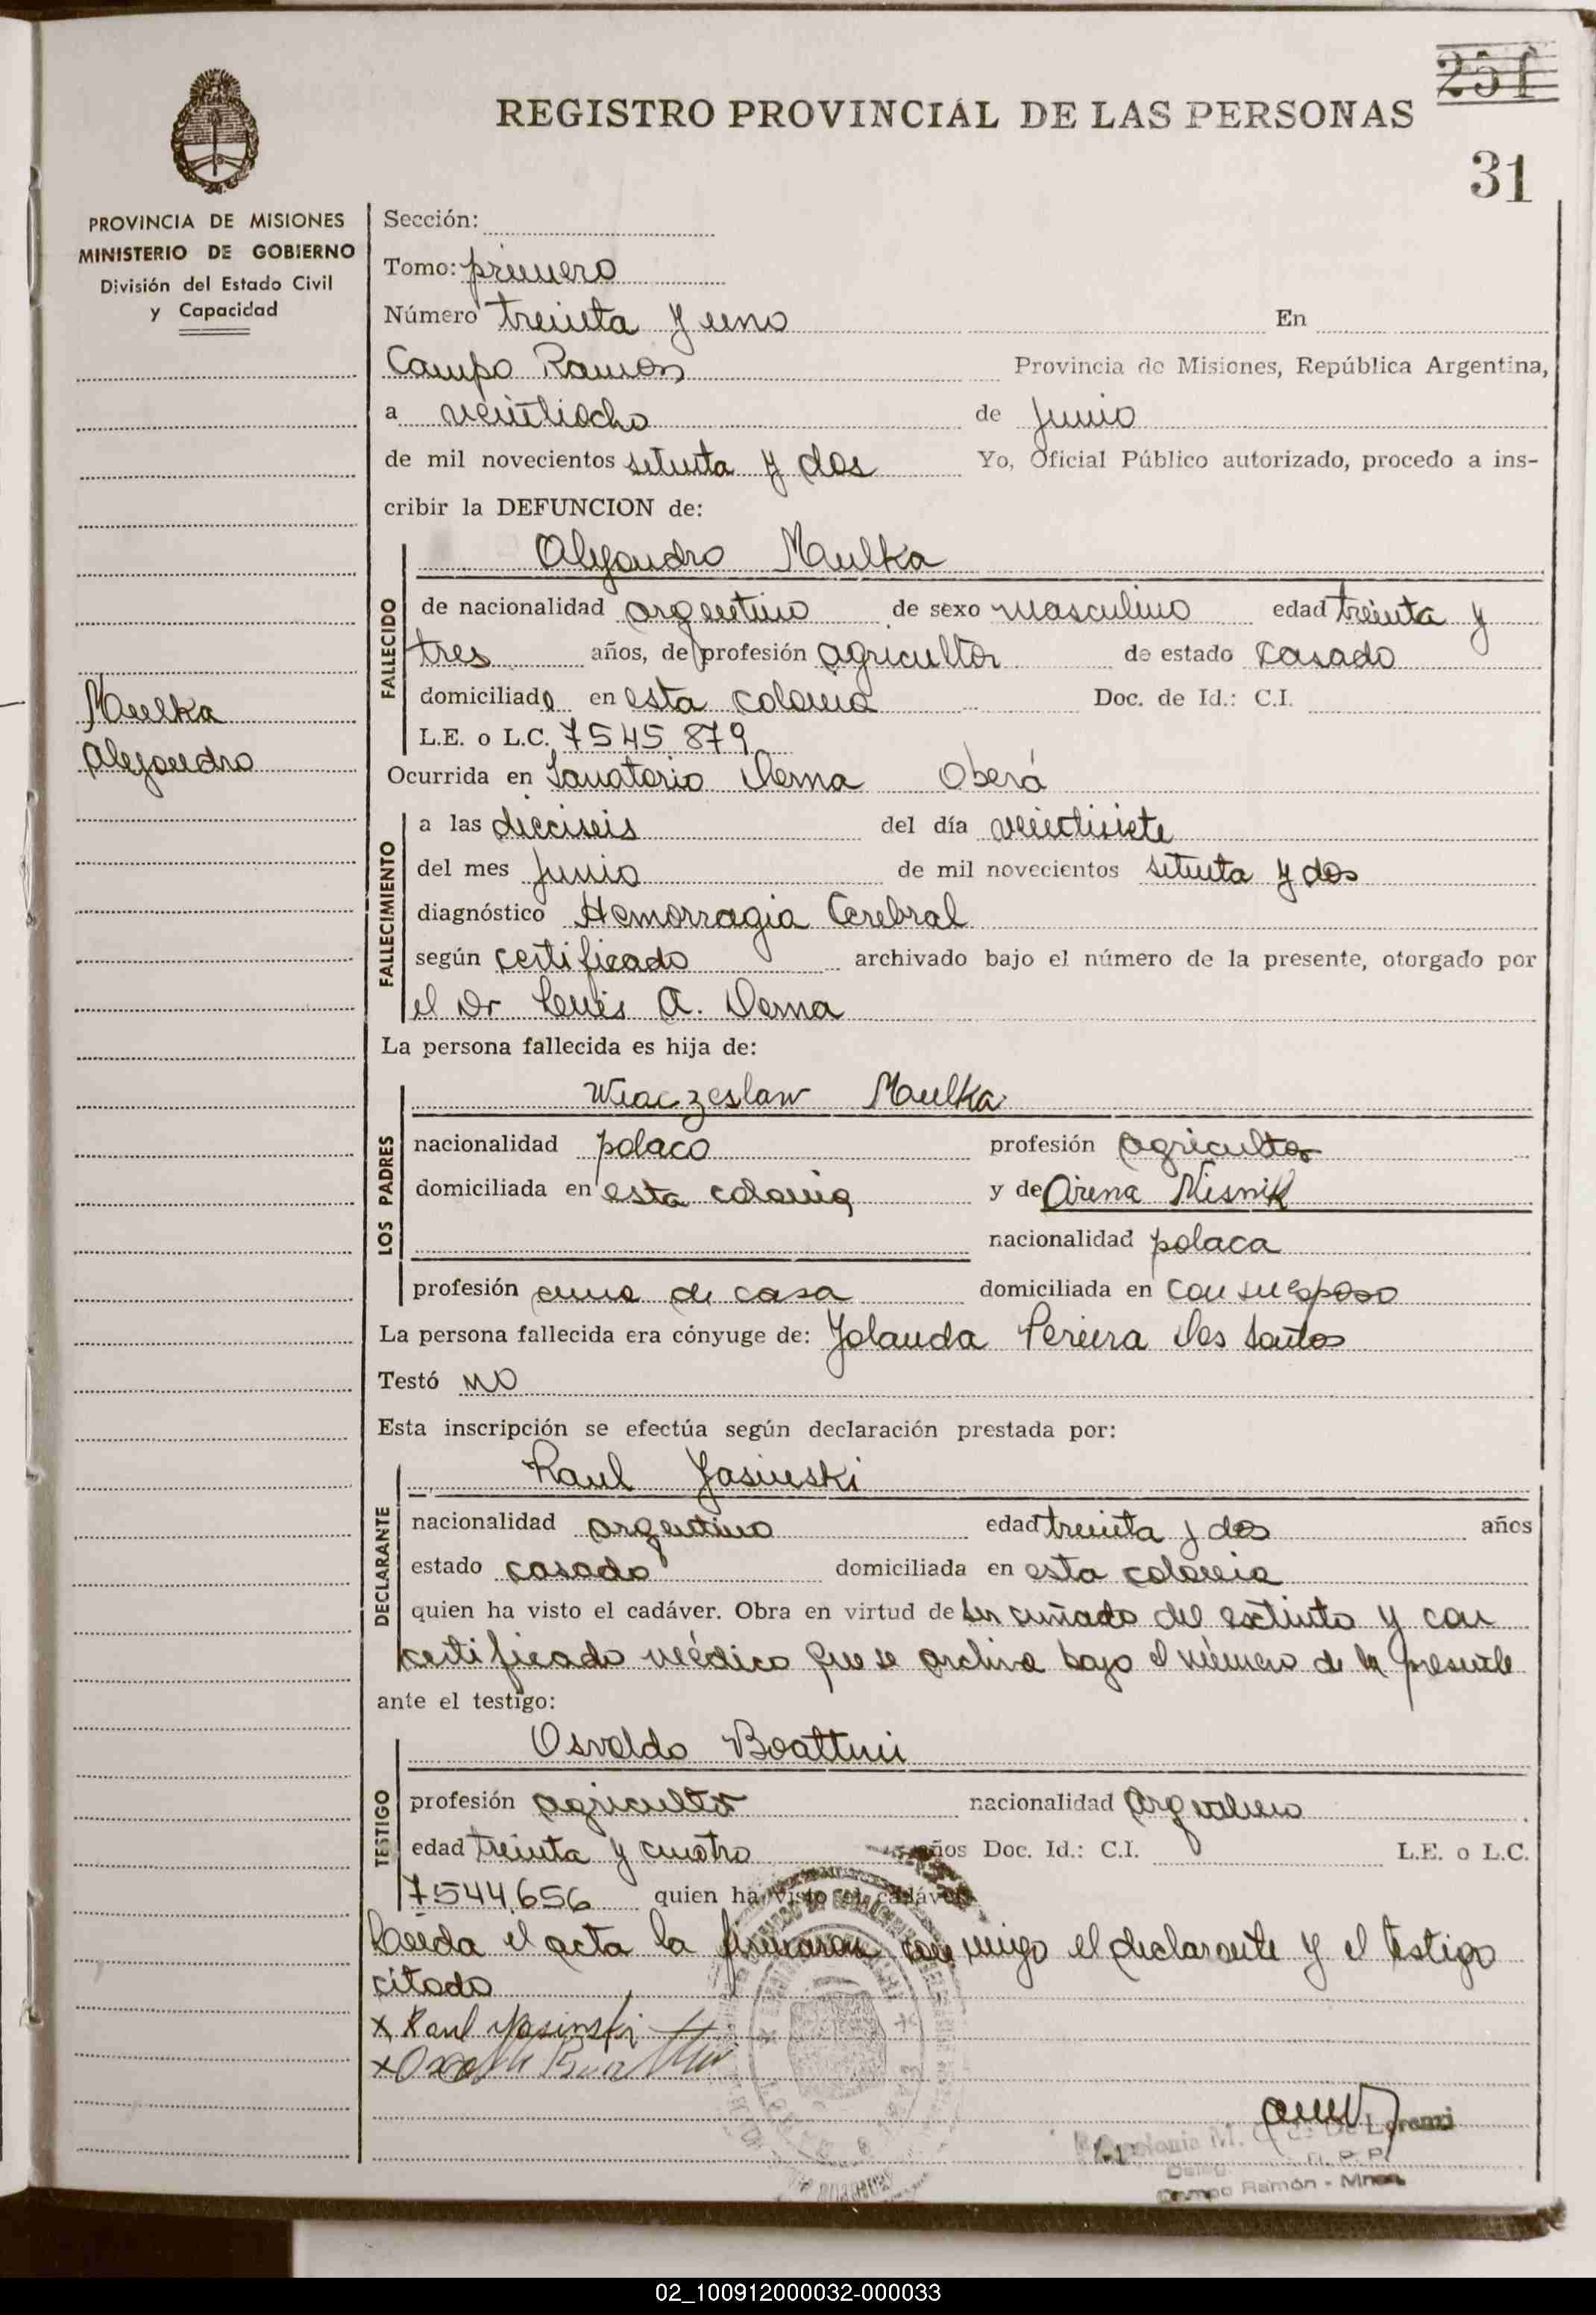 251
REGISTRO PROVINCIAL DE LAS PERSONAS
31
PROVINCIA DE MISIONES
MINISTERIO DE GOBIERNO
División del Estado Civil
y Capacidad
Maulka
Alejandro
Sección:
Tomo: primero
Número treinta y uno En
Campo Ramon Provincia de Misiones, República Argentina,
a veintiocho de Junio
de mil novecientos setenta y dos Yo, Oficial Público autorizado, procedo a ins-
cribir la DEFUNCION de:
Alejandro Maulka
FALLECIDO
de nacionalidad argentino de sexo masculino edad treinta y
tres años, de profesión agricultor de estado casado
domiciliado en esta colonia Doc. de Id.: C.I.
L.E. o L.C. 7545 879
Ocurrida en Sanatorio Derna Oberá
FALLECIMIENTO
a las dieciseis del día veintisiete
del mes Junio de mil novecientos setenta y dos
diagnóstico Hemorragia Cerebral
según certificado archivado bajo el número de la presente, otorgado por
el Dr Luis A. Derna
La persona fallecida es hija de:
LOS PADRES
Wiaczeslaw Maulka
nacionalidad polaco profesión agricultor
domiciliada en esta colonia y de Arena Nisnik
nacionalidad polaca
profesión ama de casa domiciliada en con su esposo
La persona fallecida era cónyuge de: Jolanda Pereira Dos Santos
Testó no
Esta inscripción se efectúa según declaración prestada por:
DECLARANTE
Raul Jasinski
nacionalidad argentino edad treinta y dos años
estado casado domiciliada en esta colonia
quien ha visto el cadáver. Obra en virtud de ser cuñado del extinto y con
certificado médico que se archiva bajo el número de la presente
ante el testigo:
TESTIGO
Osvaldo Boattini
profesión agricultor nacionalidad Argentino
edad treinta y cuatro años Doc. Id.: C.I. L.E. o L.C.
7544.656 quien ha visto el cadáver
Leida el acta la firmaron con migo el declarante y el testigo
citado
x Raul Yasinski
x
De Lorenzi
Campo Ramón - Mnes.
02_100912000032-000033